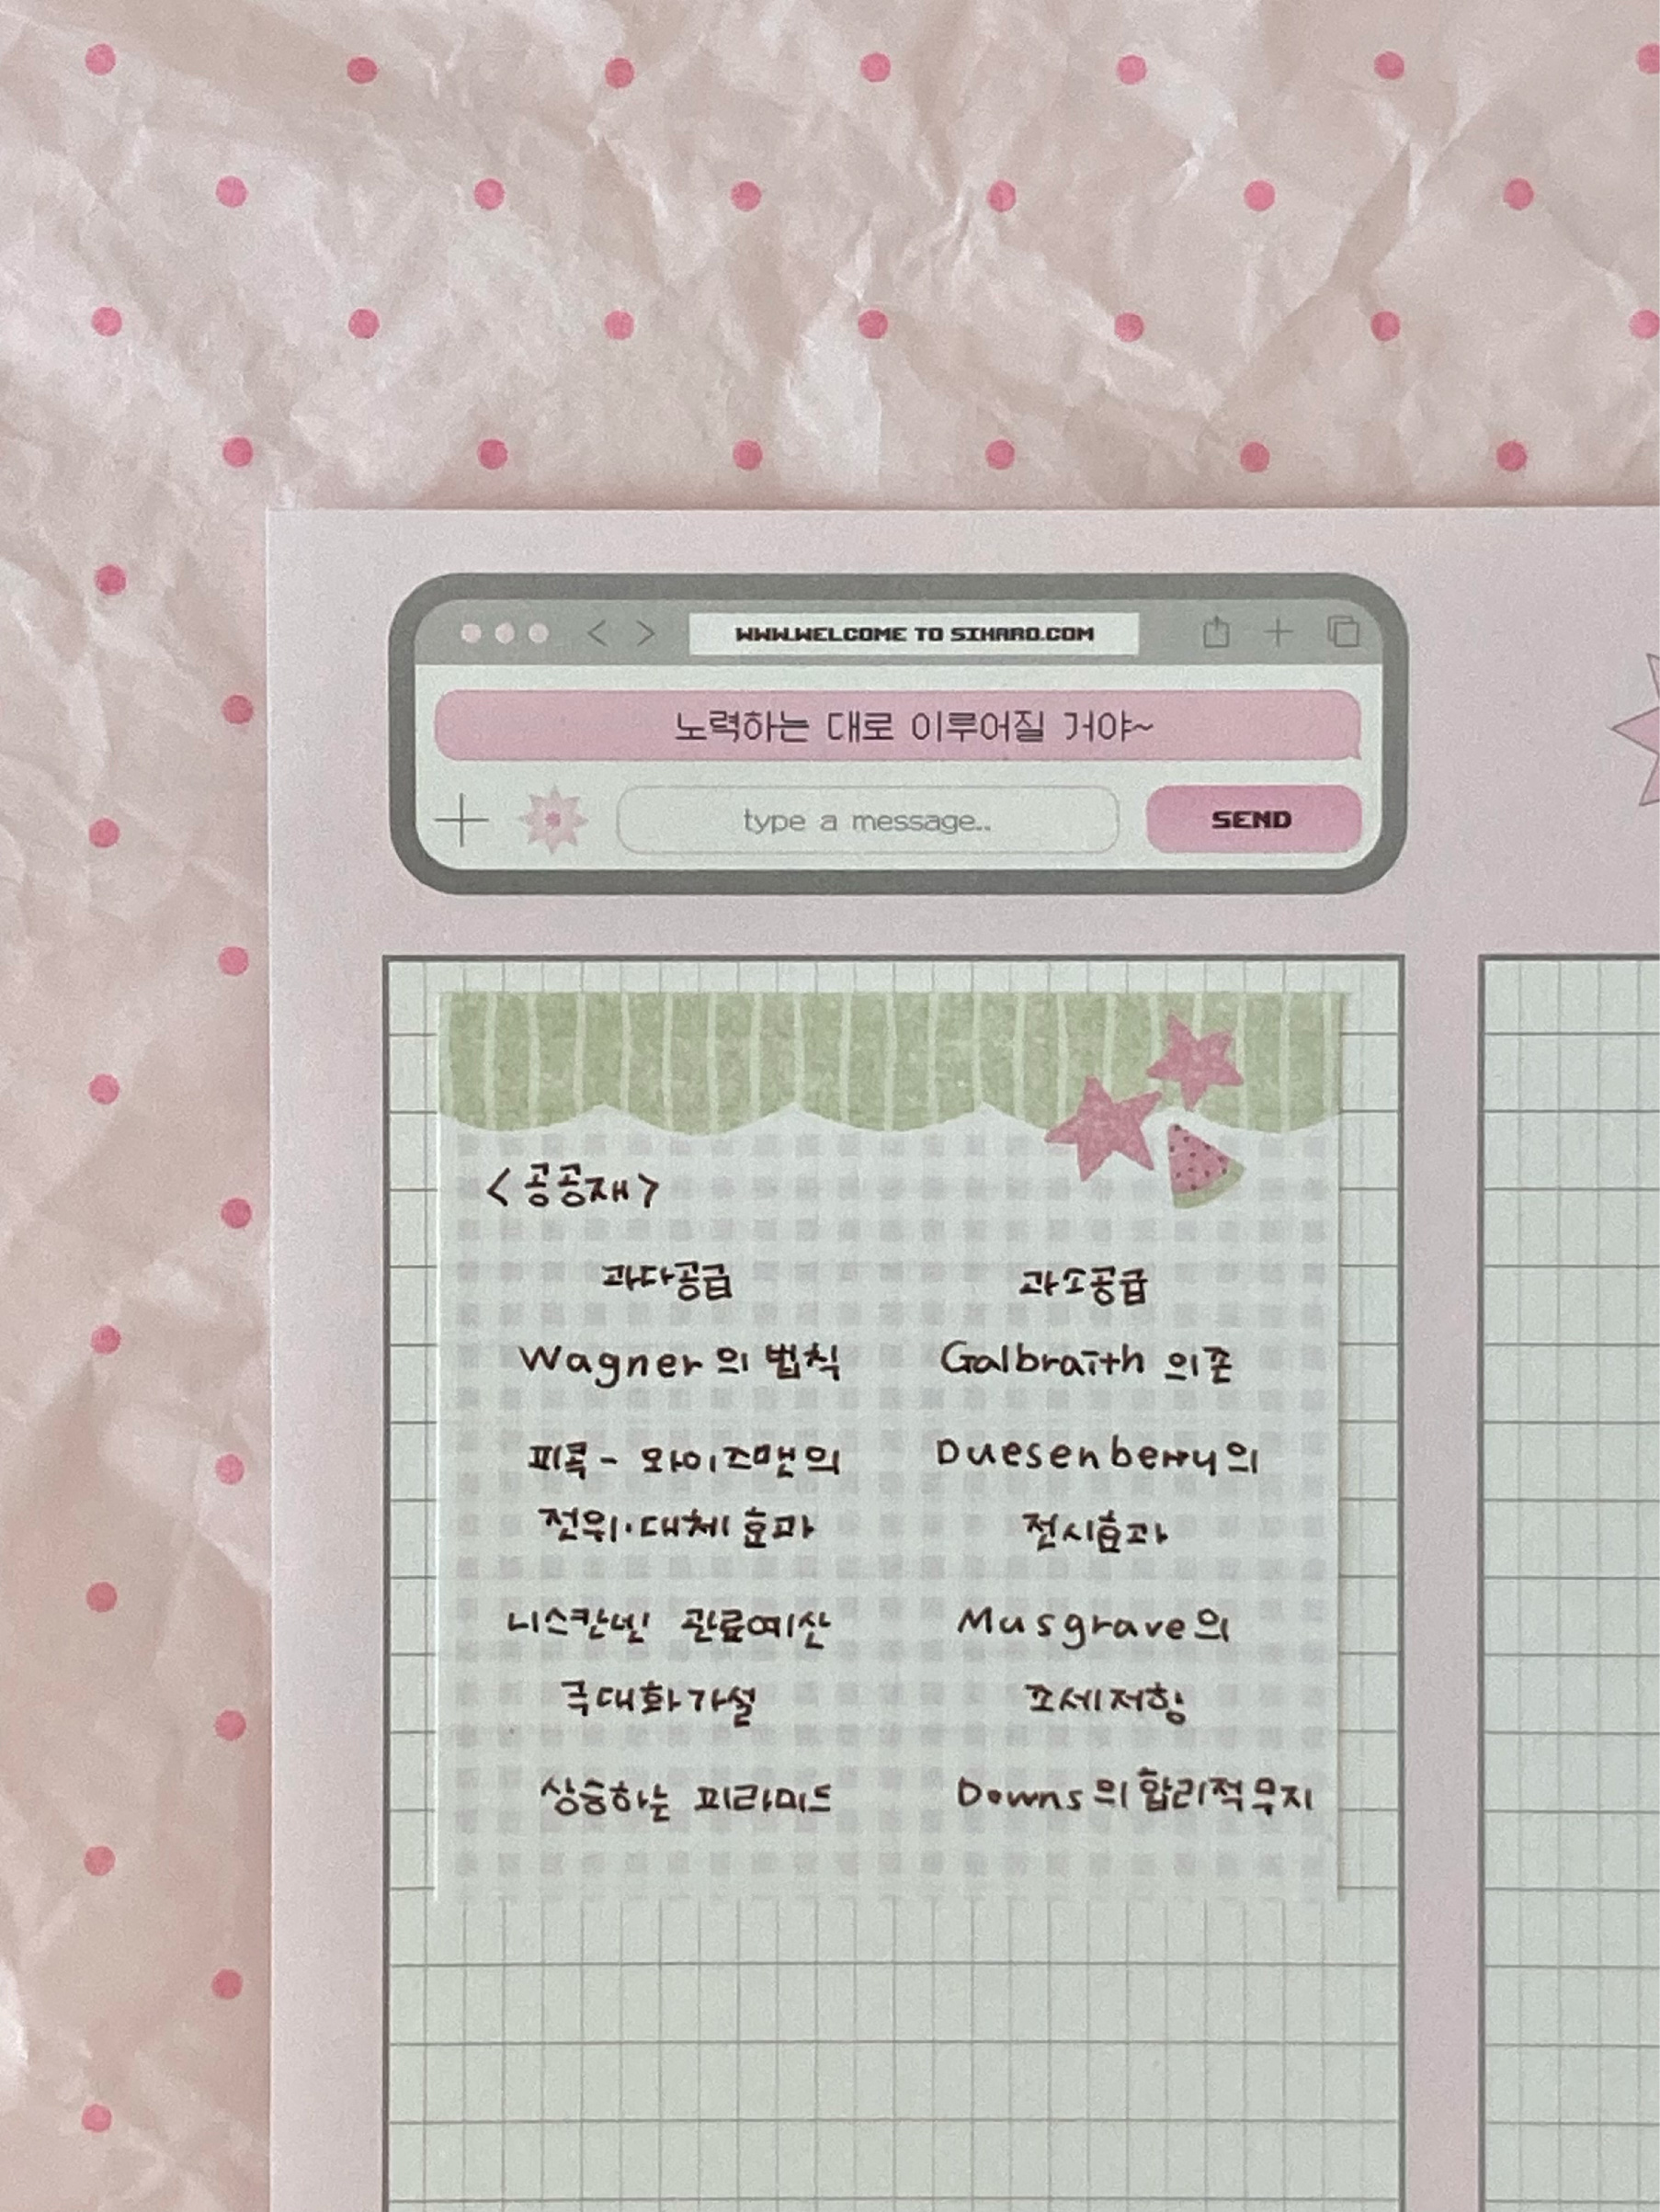 WWW.WELCOME TO SIHARO.COM
노력하는 대로 이루어질 거야~
type a message..
SEND
<공공재>
과다공급
Wagner의 법칙
피콕- 와이즈맨의
전위·대체 효과
니스칸넨 관료예산
극대화가설
상승하는 피라미드
과소공급
Galbraith 의존
Duesenberry의
전시효과
Musgrave의
조세저항
Downs의 합리적 무지